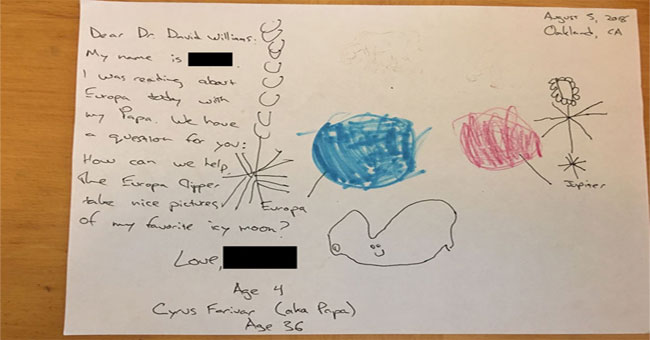 August 5, 2018
Oakland, CA
Dear Dr. David Williams:
My name is
I was reading about
Europa today with
my Papa. We have
a question for you:
How can we help
The Europa Clipper
take nice pictures
of my favorite icy moon?
Europa
Jupiter
Love,
Age 4
Cyrus Farivar (aka Papa)
Age 36